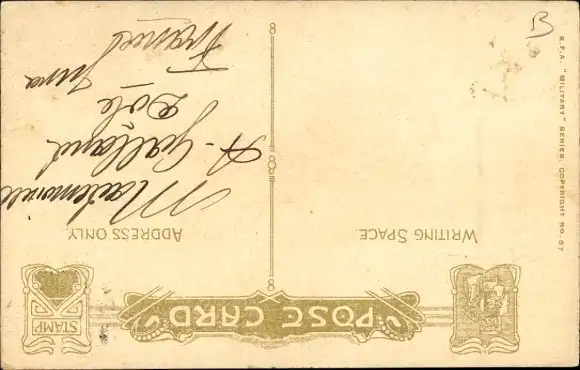 POST CARD
WRITING SPACE.
ADDRESS ONLY.
STAMP
Mademoiselle
A. Galland
Dôle
Jura
France
B
E.F.A. "MILITARY" SERIES. COPYRIGHT NO. 67